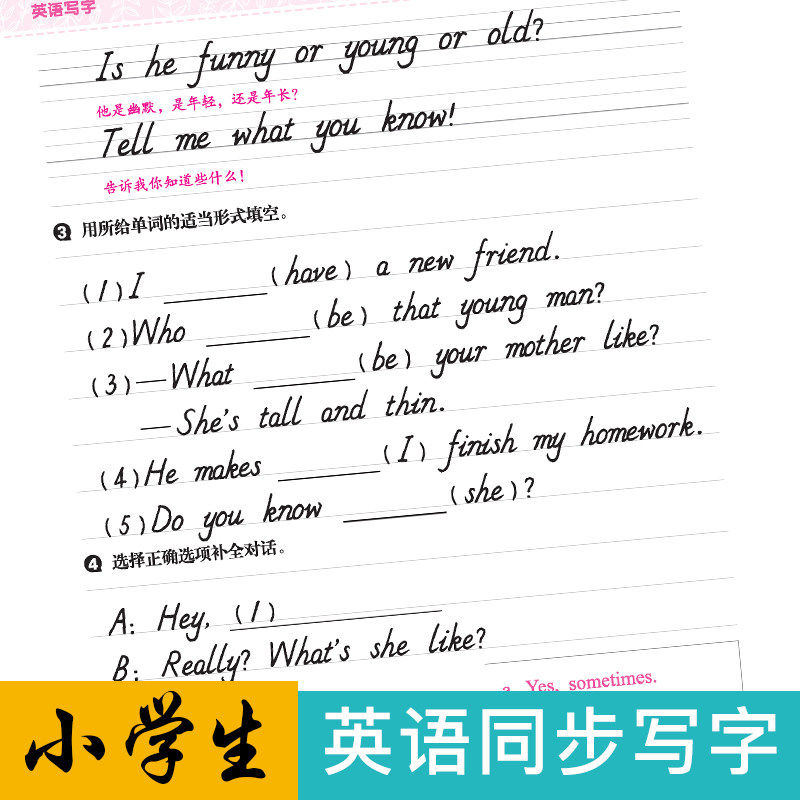 英语写字
Is he funny or young or old?
他是幽默，是年轻，还是年长？
Tell me what you know!
告诉我你知道些什么！
3 用所给单词的适当形式填空。
(1) I ________ (have) a new friend.
(2) Who ________ (be) that young man?
(3) —What ________ (be) your mother like?
—She's tall and thin.
(4) He makes ________ (I) finish my homework.
(5) Do you know ________ (she)?
4 选择正确选项补全对话。
A: Hey, (1)________
B: Really? What's she like?
a. Yes, sometimes.
小学生
英语同步写字